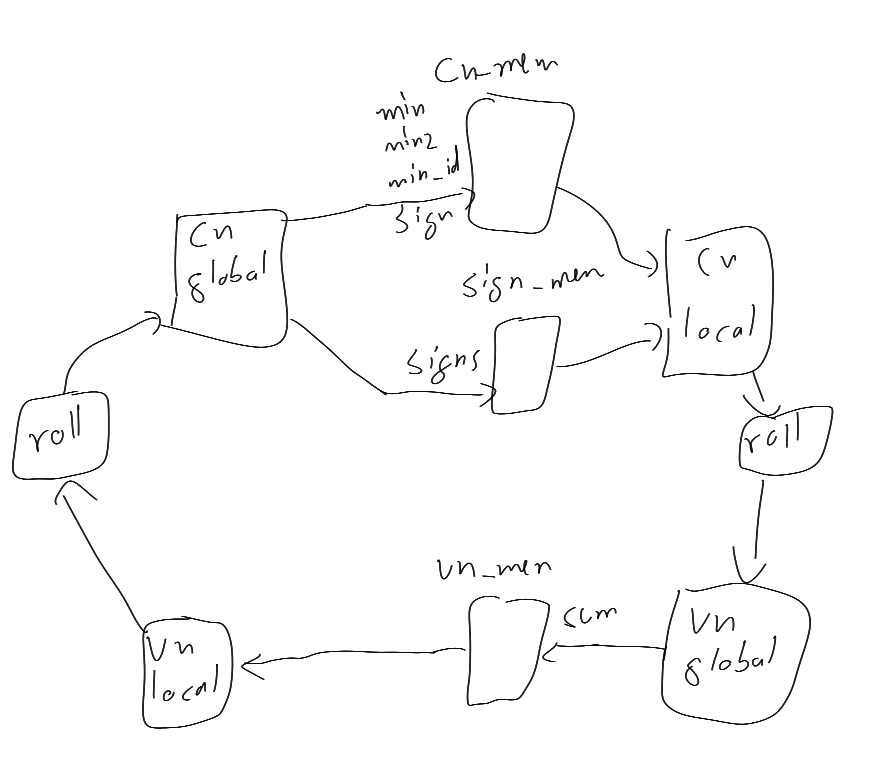 Cn_mem
min
min2
min_id
sign
Cn
global
sign_mem
Cn
local
signs
roll
roll
vn_mem
sum
Vn
global
Vn
local